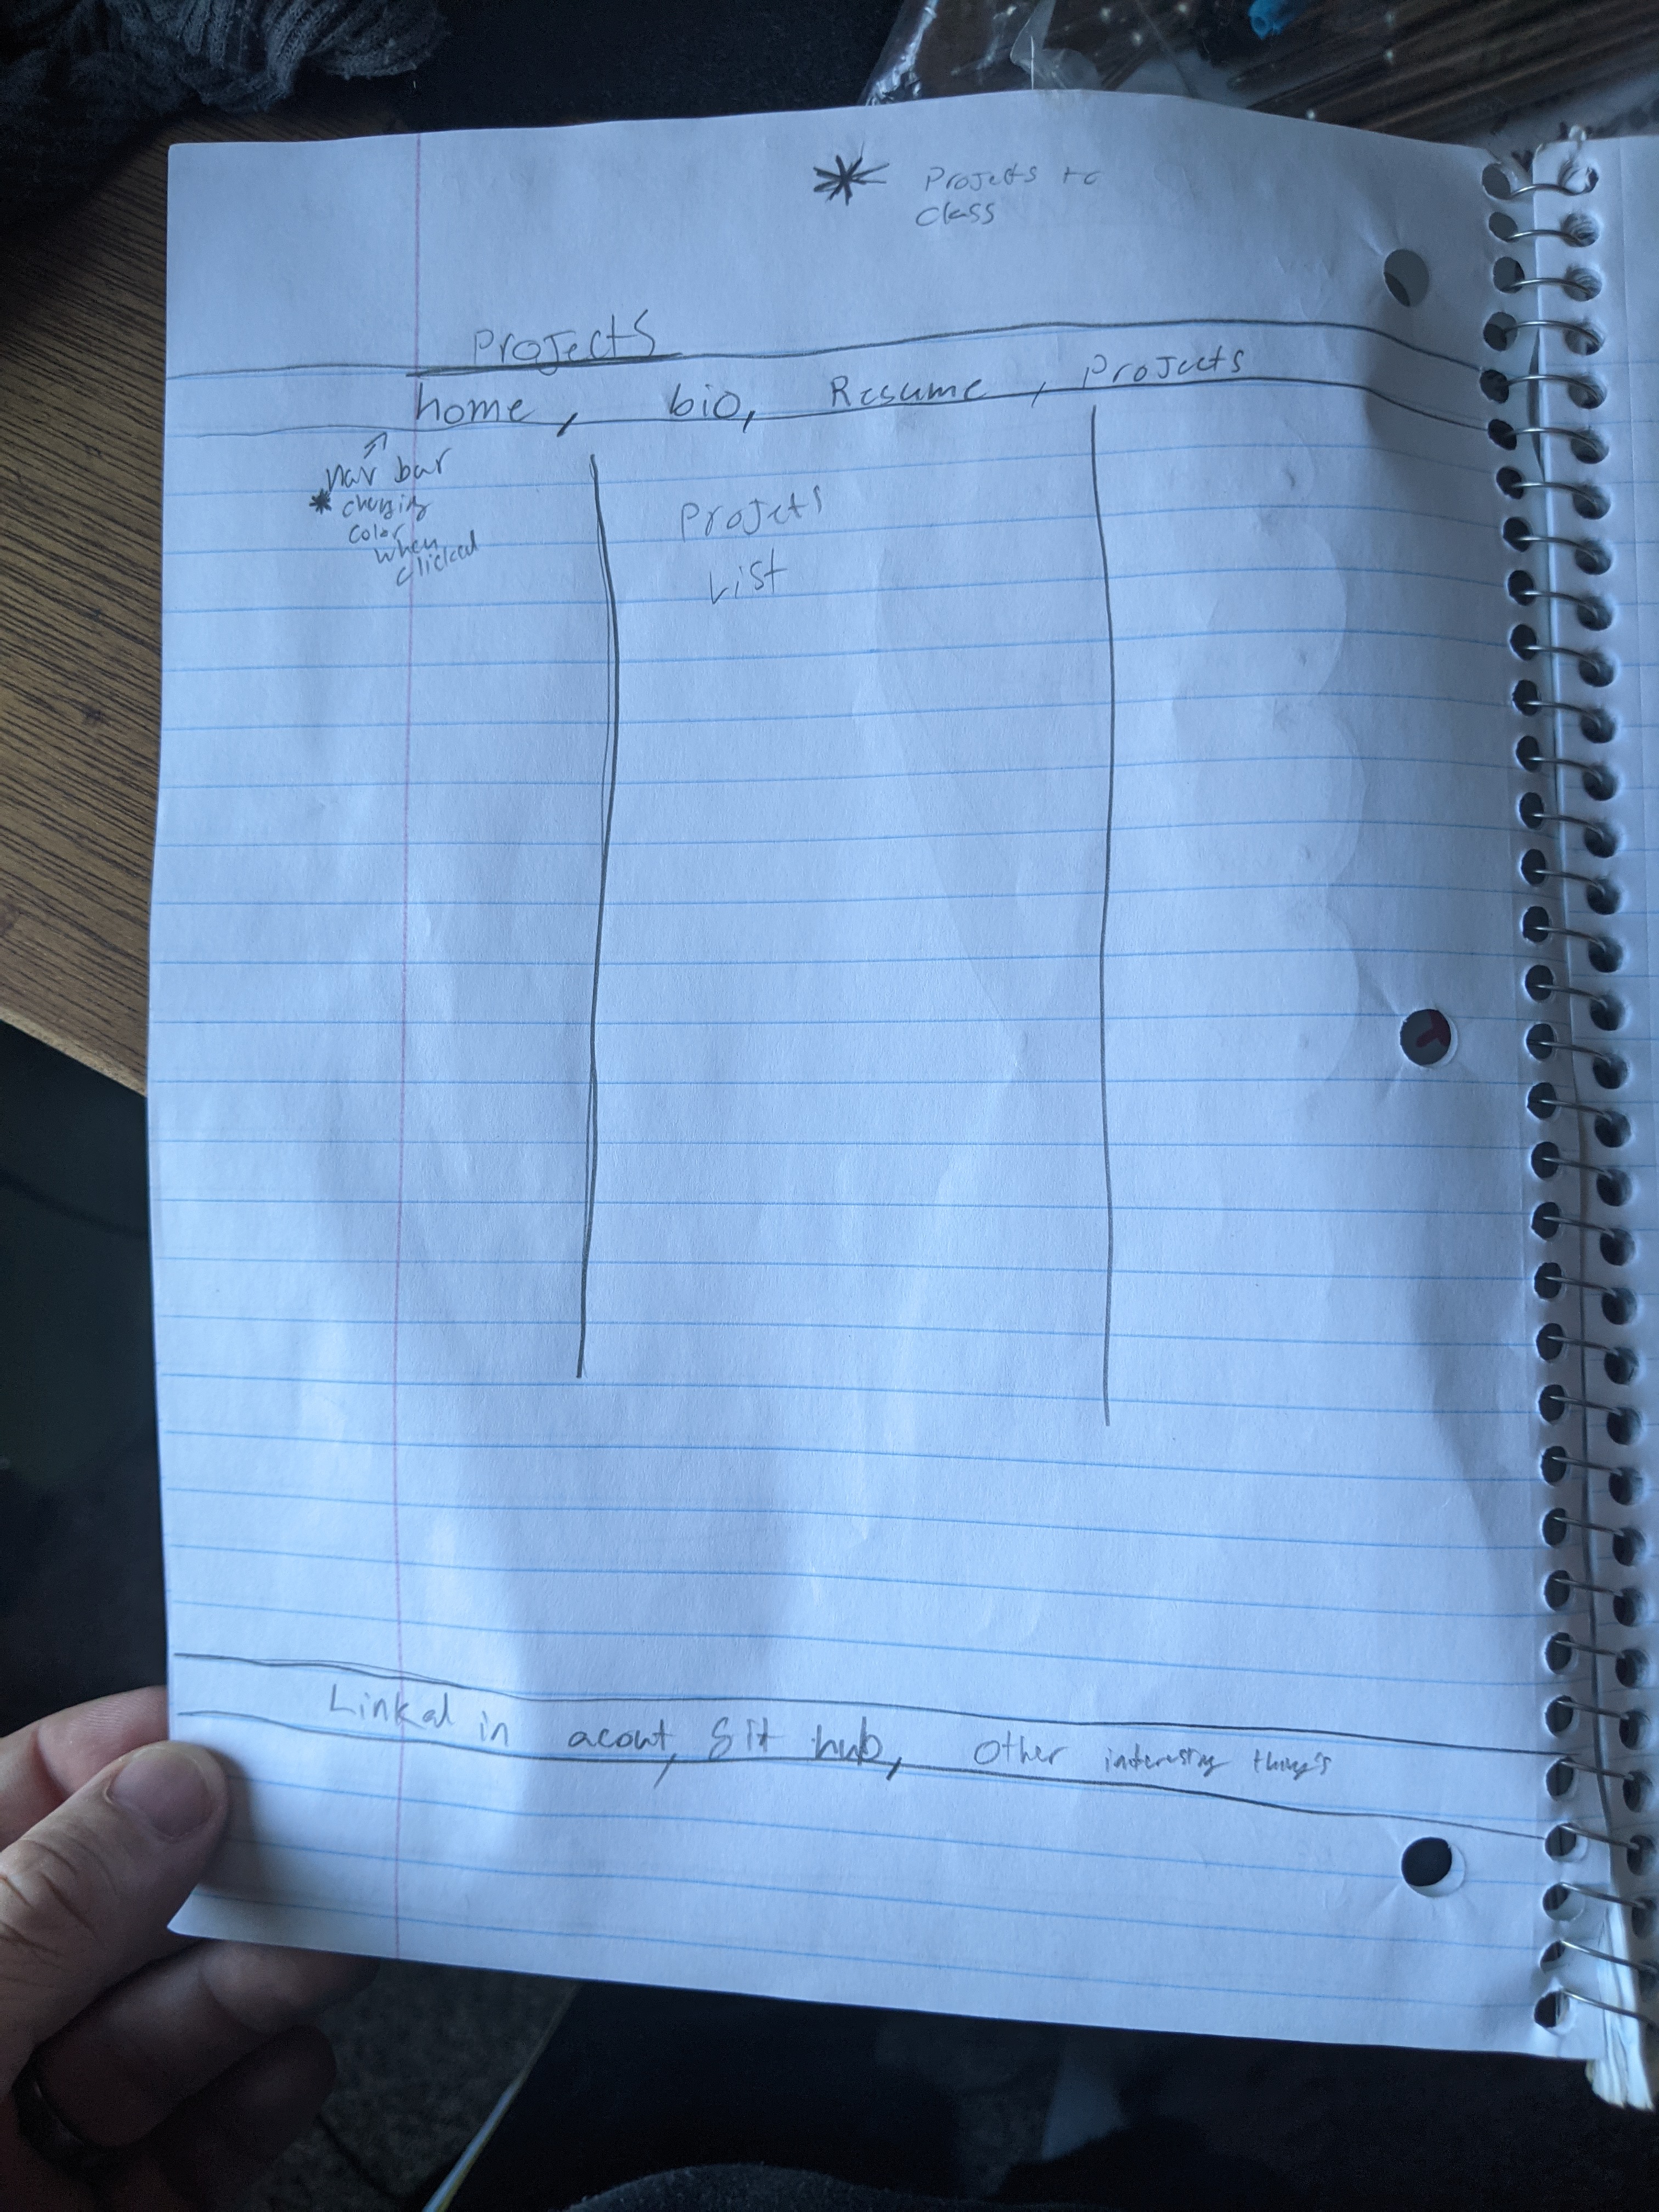 * Projects to
class
Projects
home, bio, Resume, Projects
nav bar
* changing
color
when
clicked
Projets
List
Linkd in acout, Git hub, Other interesting thing's